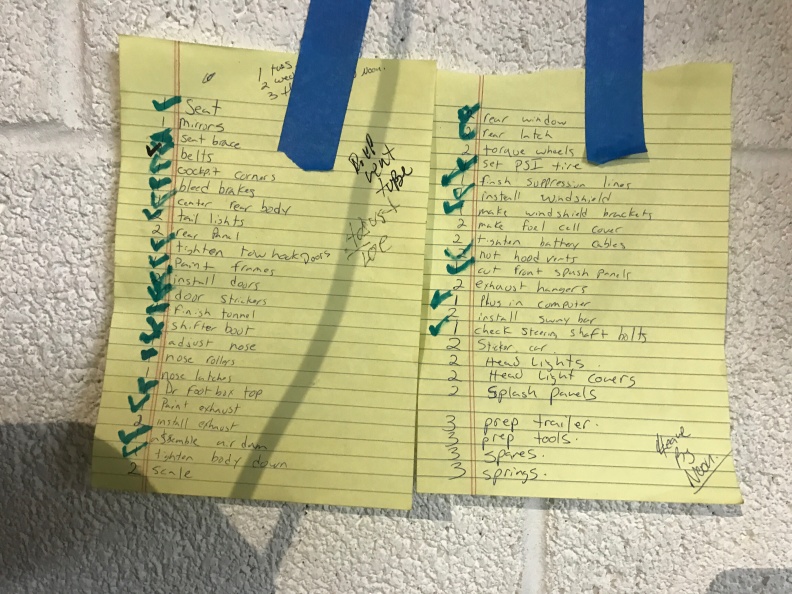 1 tues
2 wed
3 th Noon.
Seat
1 mirrors
seat brace
belts
cockpit corners
bleed brakes
center rear body
tail lights
2 rear Panel
tighten tow hook Doors
Paint frames
install doors
door strickers
finish tunnel
shifter boot
adjust nose
nose rollers
1 nose latches
Dr foot box top
Paint exhaust
2 install exhaust
assemble air dam
tighten body down
2 scale
rear window
rear latch
2 torque wheels
set PSI tire
finsh suppression lines
install windshield
make windshield brackets
2 make fuel cell cover
2 tighten battery cables
2 nut hood vents
cut front spash panels
2 exhaust hangers
1 Plug in computer
2 install sway bar
1 check steering shaft bolts
2 Sticker car
2 Head Lights.
2 Head Light covers
2 Splash panels
3 prep trailer.
3 prep tools.
3 spares.
3 springs.
Leave
By
Noon.